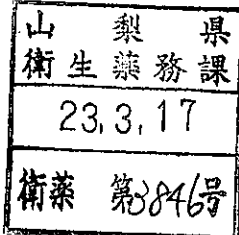 山梨県
衛生薬務課
23.3.17
衛薬 第3846号